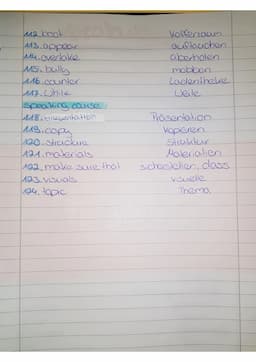 112. boot Kofferraum
113. appear auftauchen
114. overtake überholen
115. bully mobben
116. counter Ladentheke
117. while Weile
speaking course
118. presentation Präsentation
119. copy kopieren
120. structure Struktur
121. materials Materialien
122. make sure that sicherstellen, dass
123. visuals visuelle
124. topic Thema